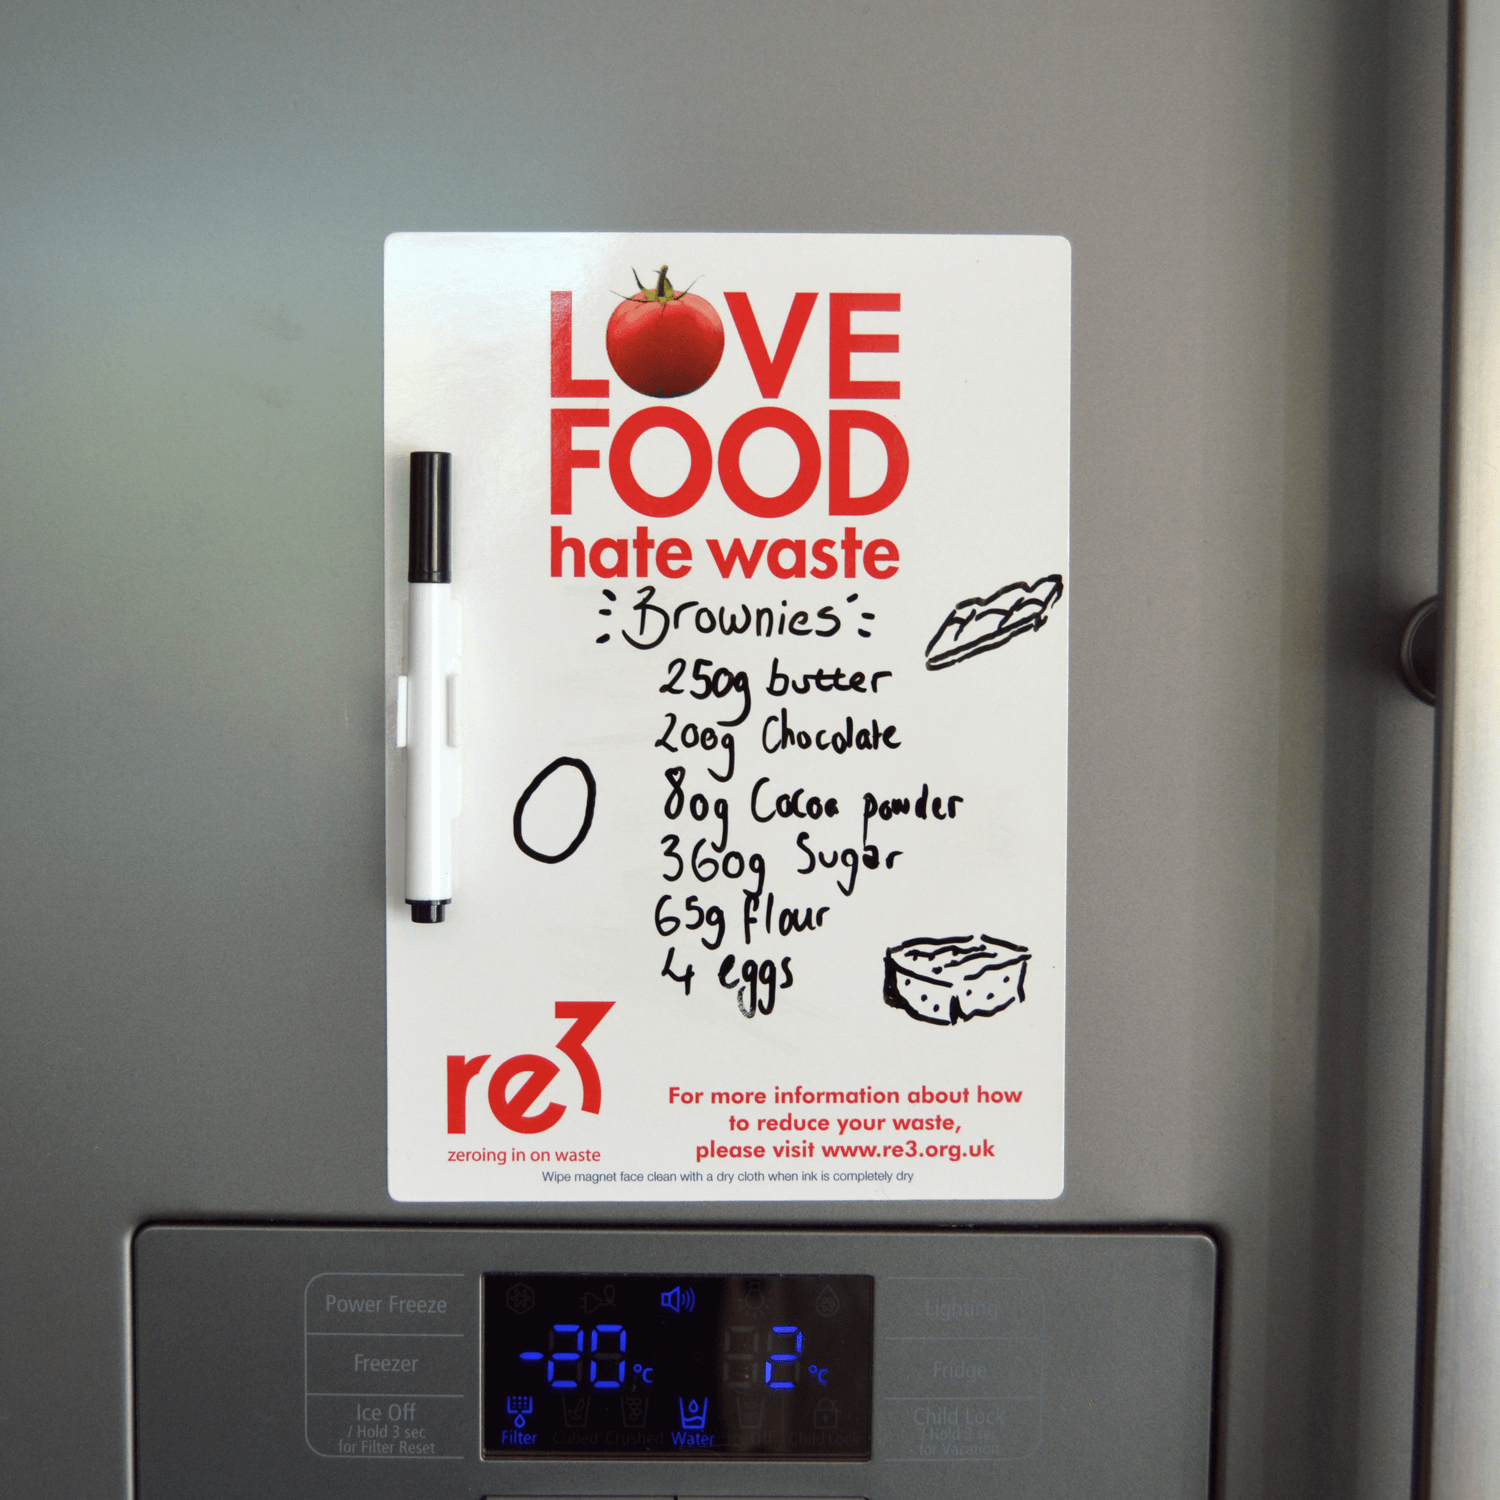 LOVE
FOOD
hate waste
Brownies
250g butter
200g Chocolate
80g Cocoa powder
360g Sugar
65g flour
4 eggs
re3
zeroing in on waste
For more information about how
to reduce your waste,
please visit www.re3.org.uk
Wipe magnet face clean with a dry cloth when ink is completely dry
Power Freeze
Freezer
Ice Off
/ Hold 3 sec
for Filter Reset
-20°C
2°C
Filter
Cubed
Crushed
Water
Ice Off
Child Lock
Lighting
Fridge
Child Lock
/ Hold 3 sec
for Vacation